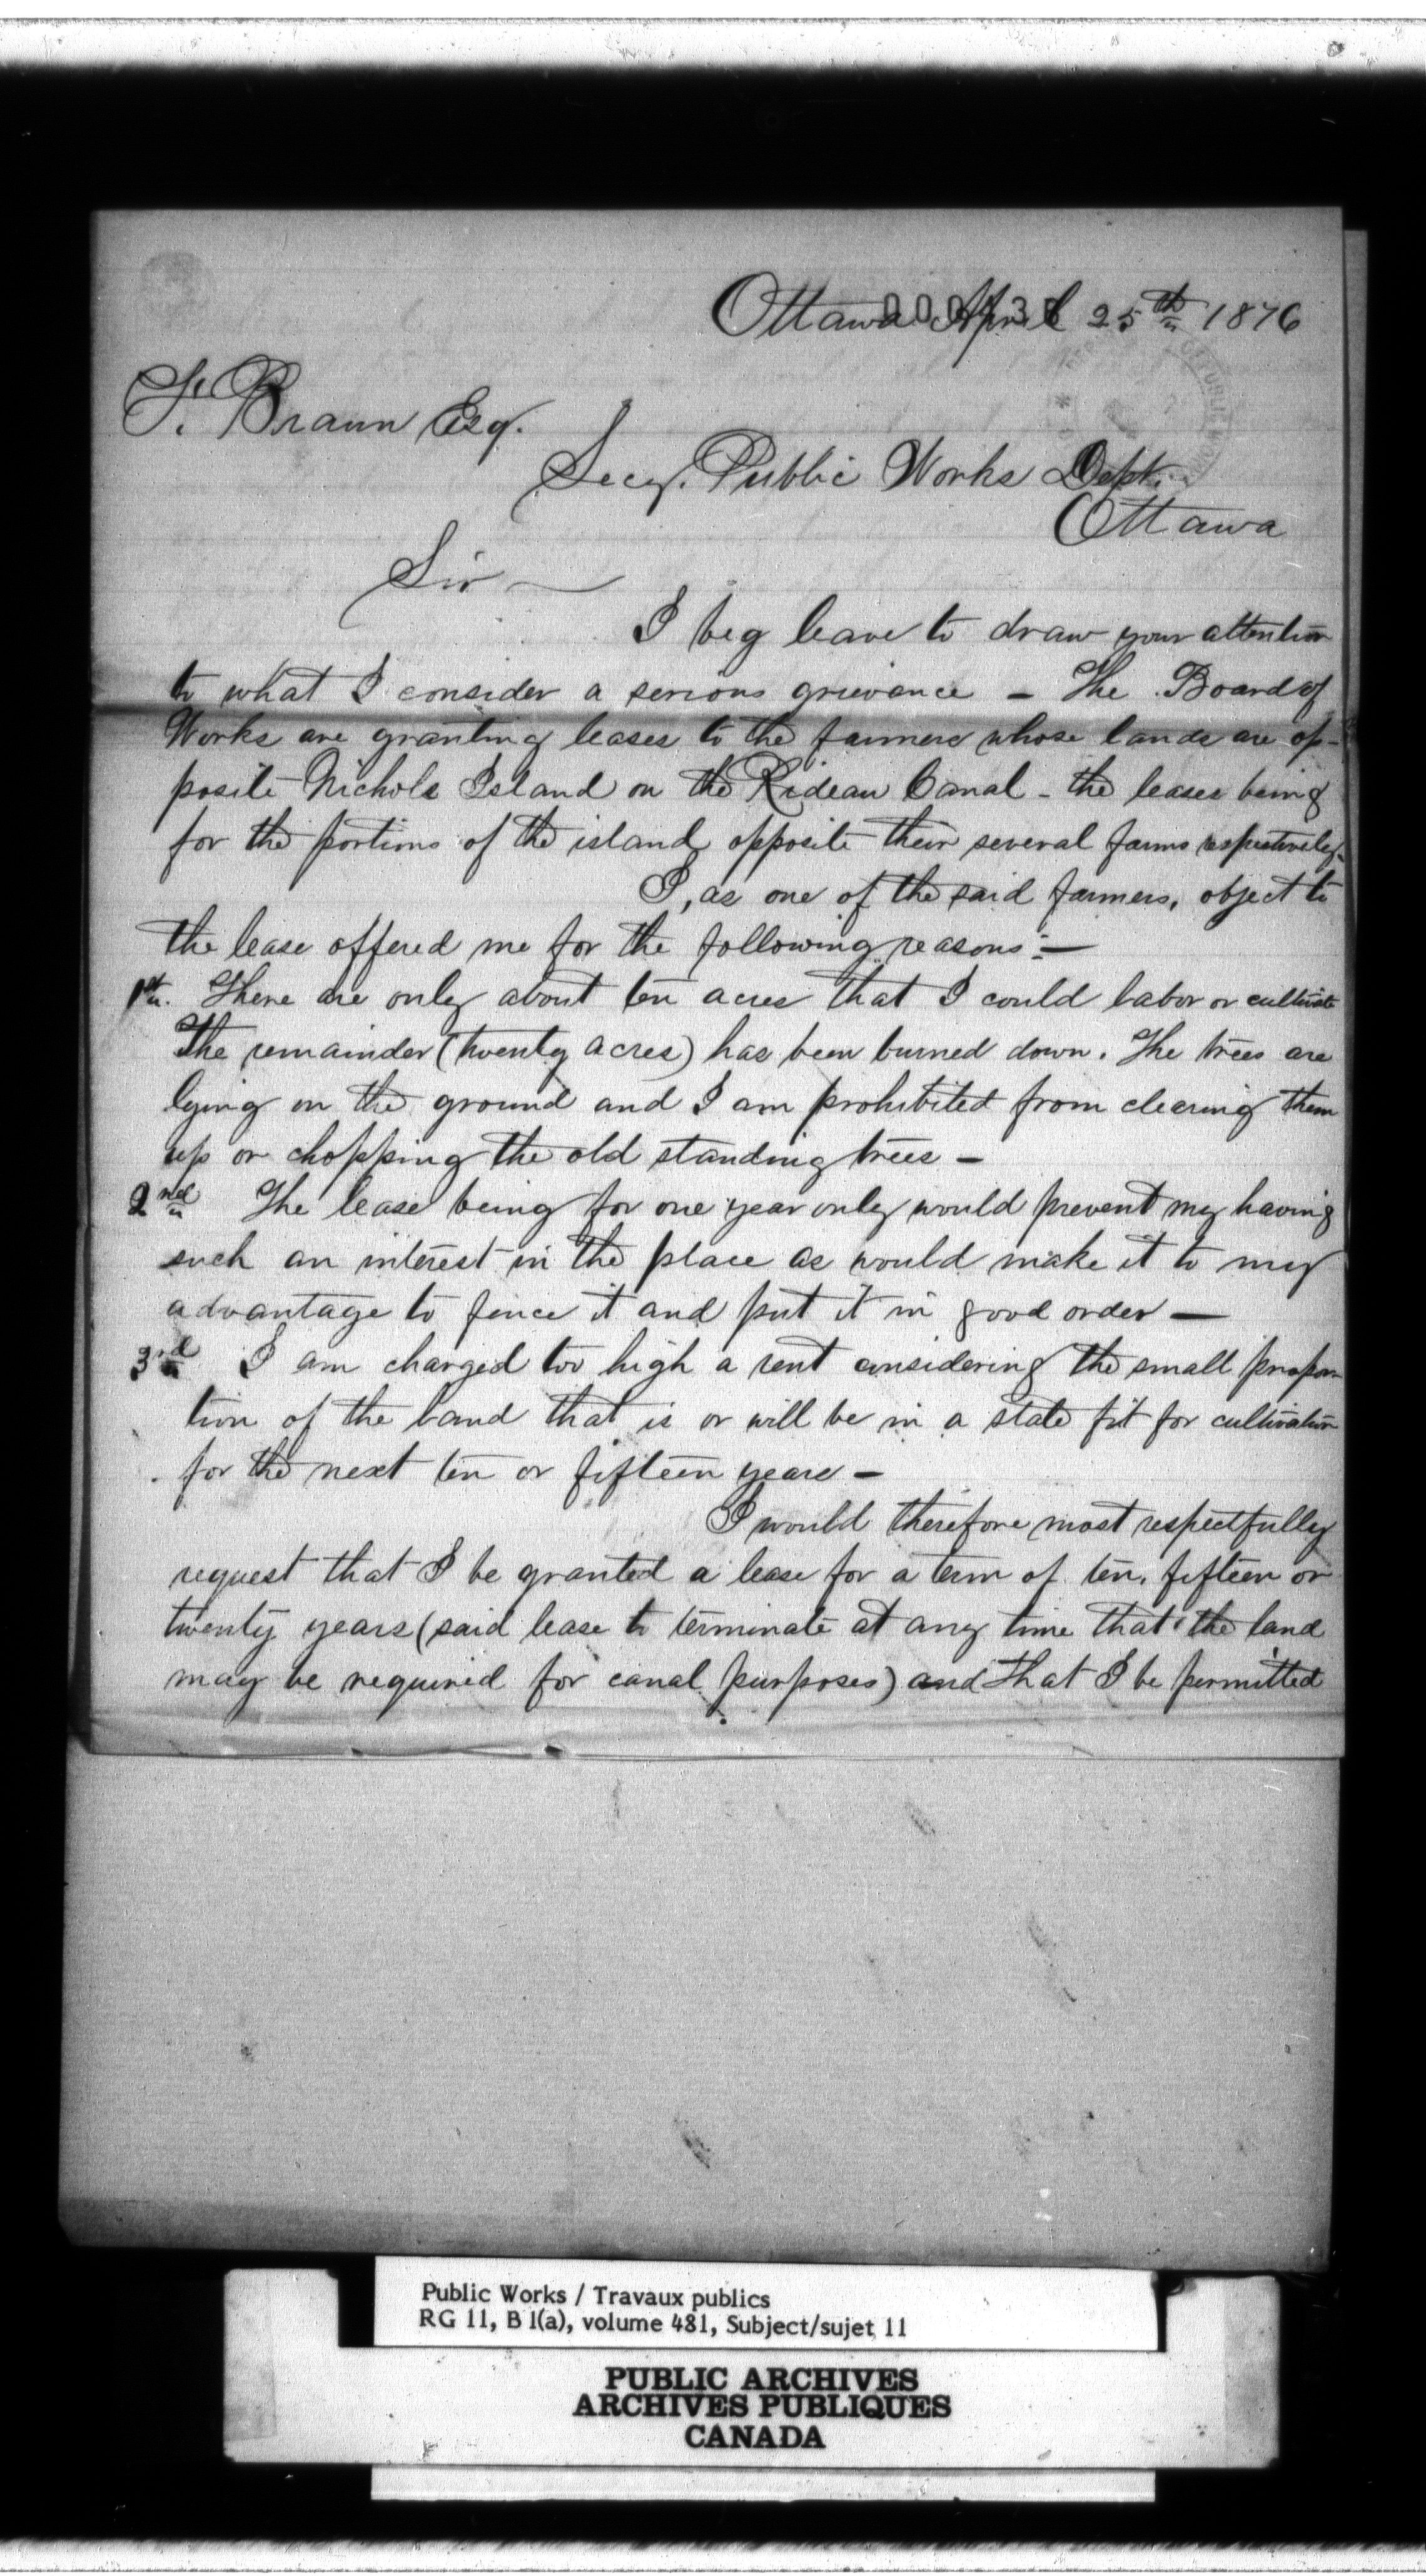 Ottawa April 25th 1876
F. Braun Esq.
Secy. Public Works Dept.
Ottawa
Sir —
I beg leave to draw your attention
to what I consider a serious grievance — The Board of
Works are granting leases to the farmers whose lands are op-
posite Nichols Island on the Rideau Canal - the leases being
for the portions of the island opposite their several farms respectively.
I, as one of the said farmers, object to
the lease offered me for the following reasons:—
1st. There are only about ten acres that I could labor or cultivate
The remainder (twenty acres) has been burned down. The trees are
lying on the ground and I am prohibited from clearing them
up or chopping the old standing trees —
2nd The lease being for one year only would prevent my having
such an interest in the place as would make it to my
advantage to fence it and put it in good order —
3rd I am charged too high a rent considering the small propor
tion of the land that is or will be in a state fit for cultivation
for the next ten or fifteen years —
I would therefore most respectfully
request that I be granted a lease for a term of ten, fifteen or
twenty years (said lease to terminate at any time that the land
may be required for canal purposes) and that I be permitted
Public Works / Travaux publics
RG 11, B 1(a), volume 481, Subject/sujet 11
PUBLIC ARCHIVES
ARCHIVES PUBLIQUES
CANADA